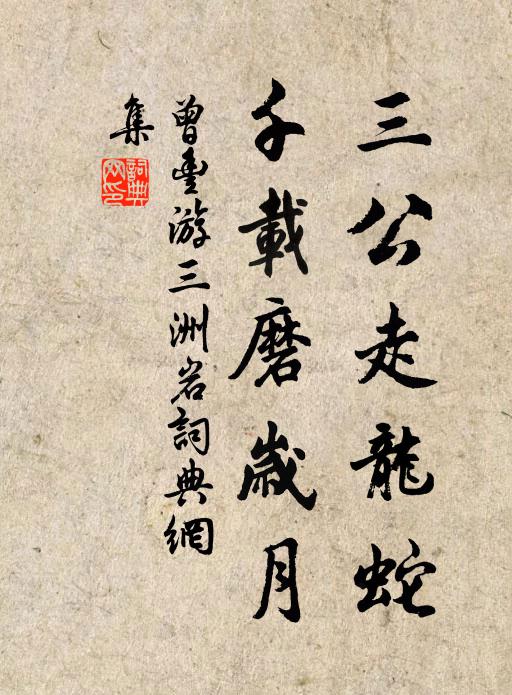 三公走龍蛇
千載磨歲月
曾豐游三洲岩詞典網
集
詞典網印